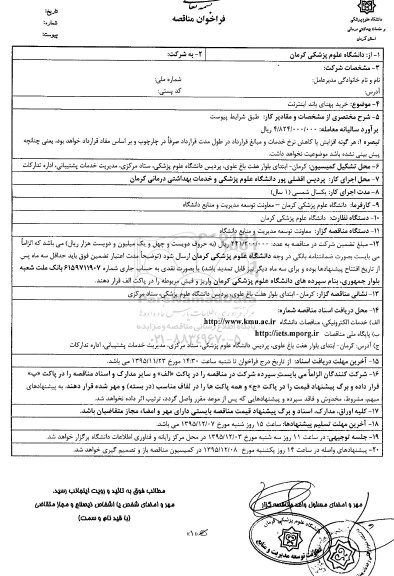 بسمه تعالی
فراخوان مناقصه
دانشگاه علوم پزشکی
و خدمات بهداشتی درمانی
استان کرمان
تاریخ:
شماره:
پیوست:
۱- از: دانشگاه علوم پزشکی کرمان
۲- به شرکت:
۳- مشخصات شرکت:
نام و نام خانوادگی مدیرعامل: شماره ملی:
آدرس: کد پستی:
۴- موضوع: خرید پهنای باند اینترنت
۵- شرح مختصری از مشخصات و مقادیر کار: طبق شرایط پیوست
برآورد سالیانه معامله: ۴/۸۲۴/۰۰۰/۰۰۰ ریال
تبصره ۱: هر گونه افزایش یا کاهش نرخ خدمات و مبالغ قرارداد در طول مدت قرارداد صرفاً در چارچوب و بر اساس مفاد قرارداد خواهد بود، یعنی چنانچه
پیش بینی نشده باشد موضوعیت نخواهد داشت.
۶- محل تشکیل کمیسیون: کرمان- ابتدای بلوار هفت باغ علوی، پردیس دانشگاه علوم پزشکی، ستاد مرکزی، مدیریت خدمات پشتیبانی، اداره تدارکات
۷- محل اجرای کار: پردیس افضلی پور دانشگاه علوم پزشکی و خدمات بهداشتی درمانی کرمان
۸- مدت اجرای کار: یکسال شمسی (۱ سال)
۹- کارفرما: دانشگاه علوم پزشکی کرمان – معاونت توسعه مدیریت و منابع دانشگاه
۱۰- دستگاه نظارت: دانشگاه علوم پزشکی کرمان
۱۱- دستگاه مناقصه گزار: معاونت توسعه مدیریت و منابع دانشگاه
۱۲- مبلغ تضمین شرکت در مناقصه به عدد: ۲۴۱/۲۰۰/۰۰۰ ریال (به حروف دویست و چهل و یک میلیون و دویست هزار ریال) می باشد که الزاماً
می بایست بصورت ضمانتنامه بانکی در وجه دانشگاه علوم پزشکی کرمان ارسال شود (توضیحاً مدت اعتبار تضمین فوق باید حداقل سه ماه پس
از تاریخ افتتاح پیشنهادها بوده و برای سه ماه دیگر نیز قابل تمدید باشد) یا بصورت نقدی به حساب جاری شماره ۶۱۵۹۷۱۱۹۰۷ بانک ملت شعبه
بلوار جمهوری، بنام سپرده های دانشگاه علوم پزشکی کرمان واریز و فیش مربوطه را در پاکت الف قرار دهند.
۱۳- نشانی مناقصه گزار: کرمان- ابتدای بلوار هفت باغ علوی، پردیس دانشگاه علوم پزشکی، ستاد مرکزی
۱۴- محل دریافت اسناد مناقصه شماره:
الف) خدمات الکترونیکی مناقصات دانشگاه http://www.kmu.ac.ir
ب) پایگاه ملی مناقصات http://iets.mporg.ir
ج) آدرس: کرمان- ابتدای بلوار هفت باغ علوی، پردیس دانشگاه علوم پزشکی، ستاد مرکزی، مدیریت خدمات پشتیبانی، اداره تدارکات
۱۵- آخرین مهلت دریافت اسناد: از تاریخ درج فراخوان تا شنبه ساعت ۱۴:۳۰ مورخ ۱۳۹۵/۱۱/۲۳ می باشد.
۱۶- شرکت کنندگان الزاماً می بایست سپرده شرکت در مناقصه را در پاکت «الف» و سایر مدارک و اسناد مناقصه را در پاکت «ب»
قرار داده و برگ پیشنهاد قیمت را در پاکت «ج» و همه پاکت ها را در لفاف مناسب (در بسته) و مهر شده قرار دهند. به پیشنهادهای
مبهم، مشروط، مخدوش و فاقد سپرده و پیشنهادهایی که پس از موعد مقرر واصل گردد، ترتیب اثر داده نخواهد شد.
۱۷- کلیه اوراق، مدارک، اسناد و برگ پیشنهاد قیمت مناقصه بایستی دارای مهر و امضاء مجاز متقاضیان باشد.
۱۸- آخرین مهلت تسلیم پیشنهادها: ساعت ۱۵ روز شنبه مورخ ۱۳۹۵/۱۲/۰۷ می باشد.
۱۹- جلسه توجیهی: در ساعت ۱۱ روز سه شنبه مورخ ۱۳۹۵/۱۲/۰۳ در محل مرکز رایانه و فناوری اطلاعات دانشگاه برگزار خواهد شد.
۲۰- پیشنهادهای واصله در ساعت ۱۴ روز یکشنبه مورخ ۱۳۹۵/۱۲/۰۸ در کمیسیون مناقصه باز و تصمیم گیری خواهد شد.
مطالب فوق به تائید و رویت اینجانب رسید.
مهر و امضای شخص یا اشخاص ذیصلاح و مجاز متقاضی
(با قید نام و سمت)
مهر و امضای مسئول واحد مناقصه گزار
معاونت توسعه مدیریت و منابع